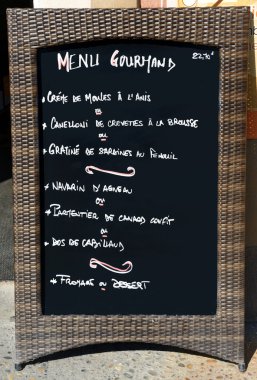 MENU GOURMAND
22,70€
* CRÈME DE MOULES À L'ANIS
OU
* CANELLONI DE CREVETTES À LA BROUSSE
OU
* GRATINÉ DE SARDINES AU FENOUIL
* NAVARIN D'AGNEAU
OU
* PARMENTIER DE CANARD CONFIT
OU
* DOS DE CABILLAUD
* FROMAGE OU DESSERT